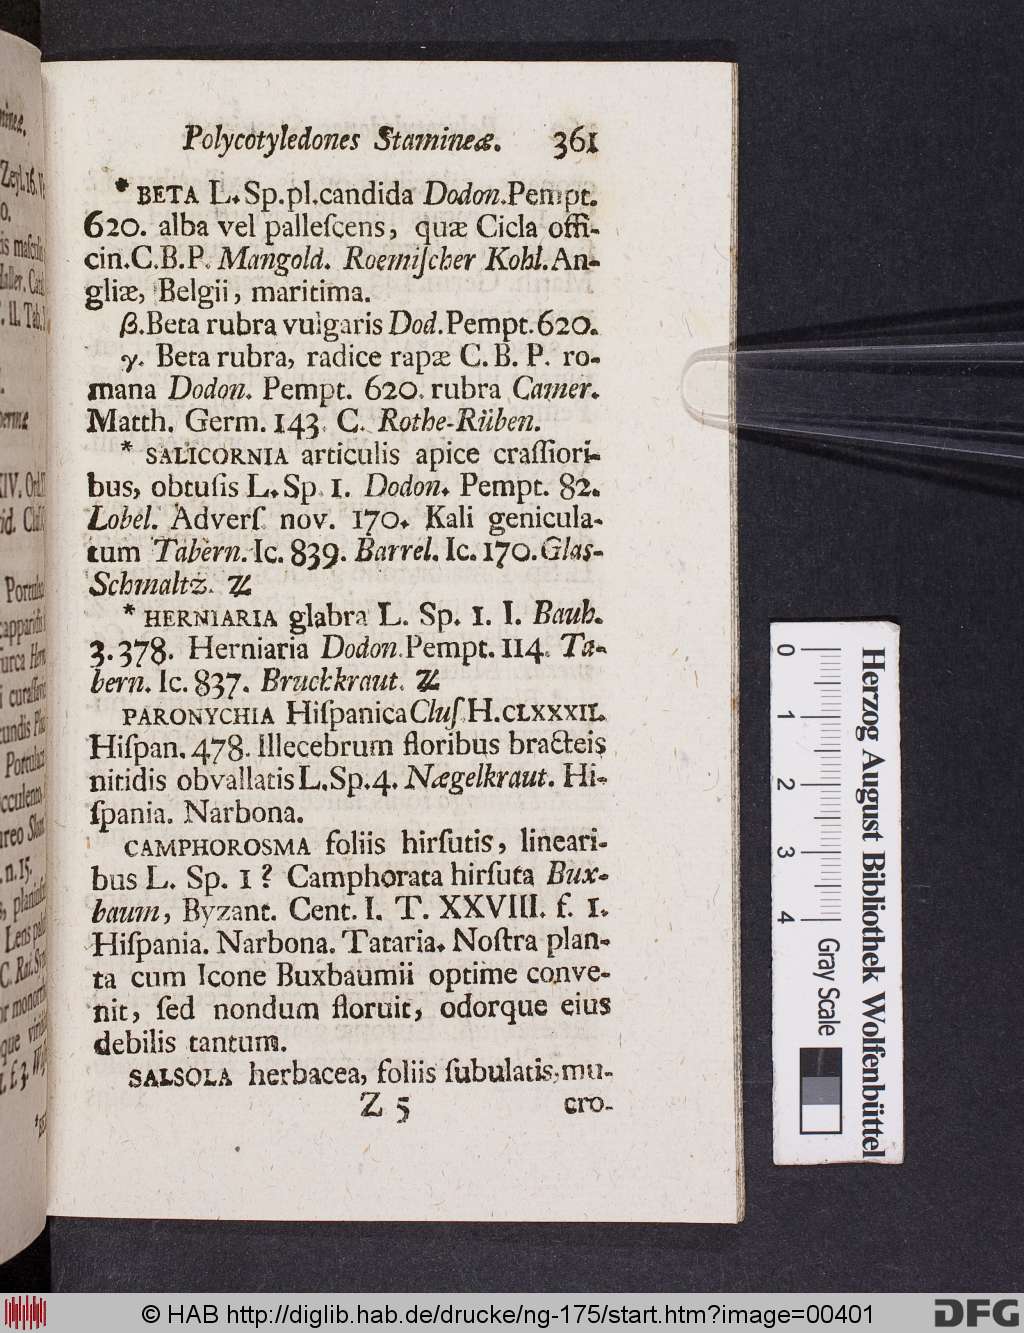 Polycotyledones Stamineæ. 361
* BETA L. Sp. pl. candida Dodon. Pempt.
620. alba vel palleſcens, quæ Cicla offi-
cin. C.B.P. Mangold. Roemiſcher Kohl. An-
gliæ, Belgii, maritima.
β. Beta rubra vulgaris Dod. Pempt. 620.
γ. Beta rubra, radice rapæ C. B. P. ro-
mana Dodon. Pempt. 620. rubra Camer.
Matth. Germ. 143. C. Rothe-Rüben.
* SALICORNIA articulis apice craſſiori-
bus, obtuſis L. Sp. 1. Dodon. Pempt. 82.
Lobel. Adverſ nov. 170. Kali genicula-
tum Tabern. Ic. 839. Barrel. Ic. 170. Glas-
Schmaltz. ♃
* HERNIARIA glabra L. Sp. 1. I. Bauh.
3. 378. Herniaria Dodon. Pempt. 114. Ta-
bern. Ic. 837. Bruchkraut. ♃
PARONYCHIA Hiſpanica Cluſ. H. CLXXXII.
Hiſpan. 478. Illecebrum floribus bracteis
nitidis obvallatis L. Sp. 4. Nægelkraut. Hi-
ſpania. Narbona.
CAMPHOROSMA foliis hirſutis, lineari-
bus L. Sp. 1? Camphorata hirſuta Bux-
baum, Byzant. Cent. I. T. XXVIII. f. 1.
Hiſpania. Narbona. Tataria. Noſtra plan-
ta cum Icone Buxbaumii optime conve-
nit, ſed nondum floruit, odorque eius
debilis tantum.
SALSOLA herbacea, foliis ſubulatis, mu-
Z 5 cro-
0 1 2 3 4
Gray Scale
Herzog August Bibliothek Wolfenbüttel
© HAB http://diglib.hab.de/drucke/ng-175/start.htm?image=00401
DFG